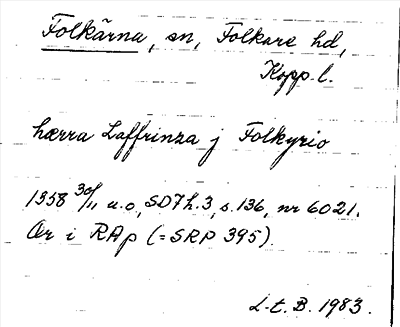 Folkärna, sn, Folkare hd,
Kopp. l.
hærra Laffrinza j Folkyrio
1358 30/11 u.o, SD7 h.3, s.136, nr 6021.
Or i RAp (=SRP 395).
L.t.B. 1983.